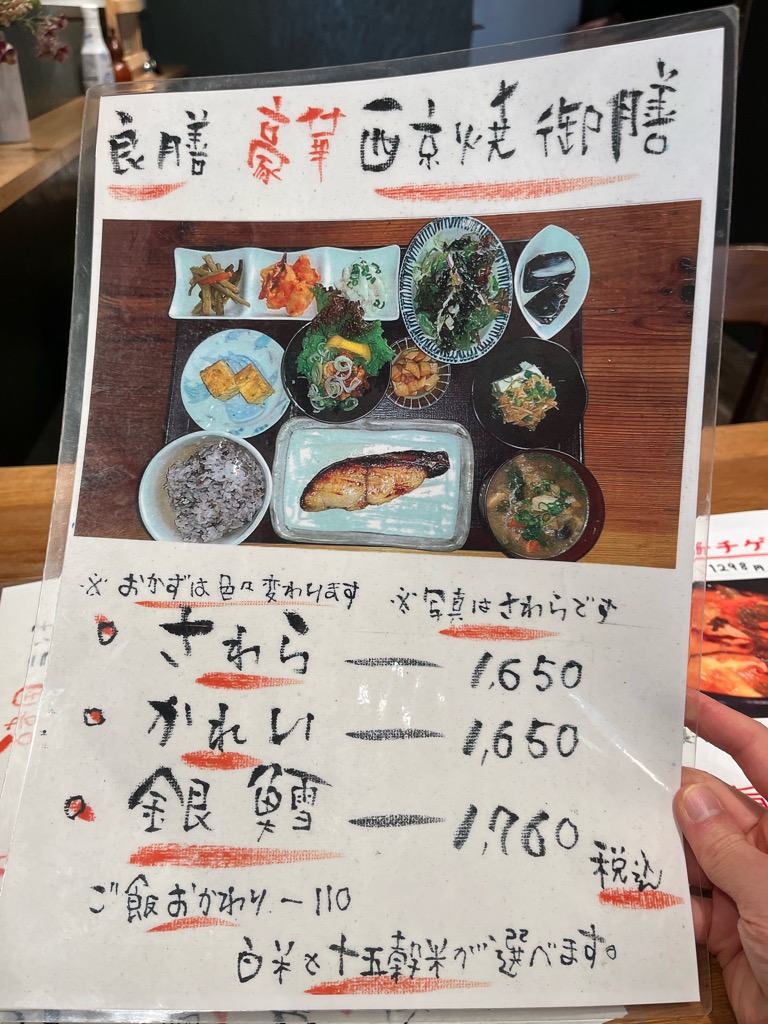 良膳 豪華 西京焼 御膳
※ おかずは色々変わります ※ 写真はさわらです
さわら — 1,650
かれい — 1,650
銀鱈 — 1,760
税込
ご飯おかわり — 110
白米と十五穀米が選べます。
チゲ
1298円